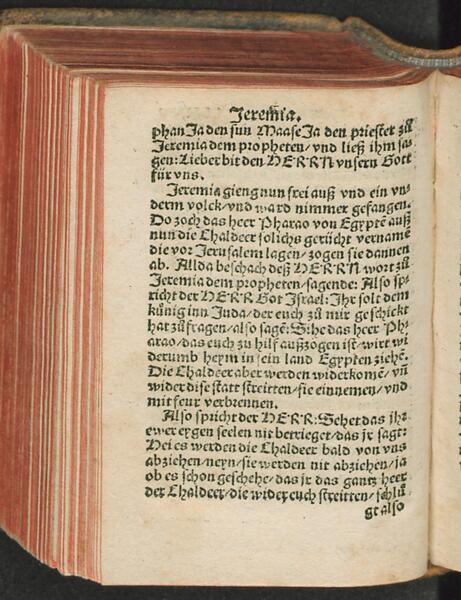 Jeremia.
phanJa den sun MaaseJa den priester zů
Jeremia dem propheten/ vnd ließ ihm sa-
gen: Lieber bit den HERRN vnsern Gott
für vns.
Jeremia gieng nun frei auß vnd ein vn-
derm volck/ vnd ward nimmer gefangen.
Do zoch das heer Pharao von Egyptē auß
nun die Chaldeer solichs gerücht vernamē
die vor Jerusalem lagen/ zogen sie dannen
ab. Allda beschach deß HERRN wort zů
Jeremia dem propheten/ sagende: Also sp-
richt der HERR Got Israel: Ihr solt dem
künig inn Juda/ der euch zů mir geschickt
hat zůfragen/ also sagē: Sihe das heer Ph-
arao/ das euch zů hilf außzogen ist/ wirt wi
derumb heym in sein land Egypten ziehē.
Die Chaldeer aber werden widerkomē/ vñ
wider dise statt streitten/ sie einnemen/ vnd
mit feur verbrennen.
Also spricht der HERR: Sehet das ihr
ewer eygen seelen nit betrieget/ das jr sagt:
Hei es werden die Chaldeer bald von vns
abziehen/ neyn/ sie werden nit abziehen/ ja
ob es schon geschehe/ das jr das gantz heer
der Chaldeer/ die wider euch streitten/ schlů-
gt also